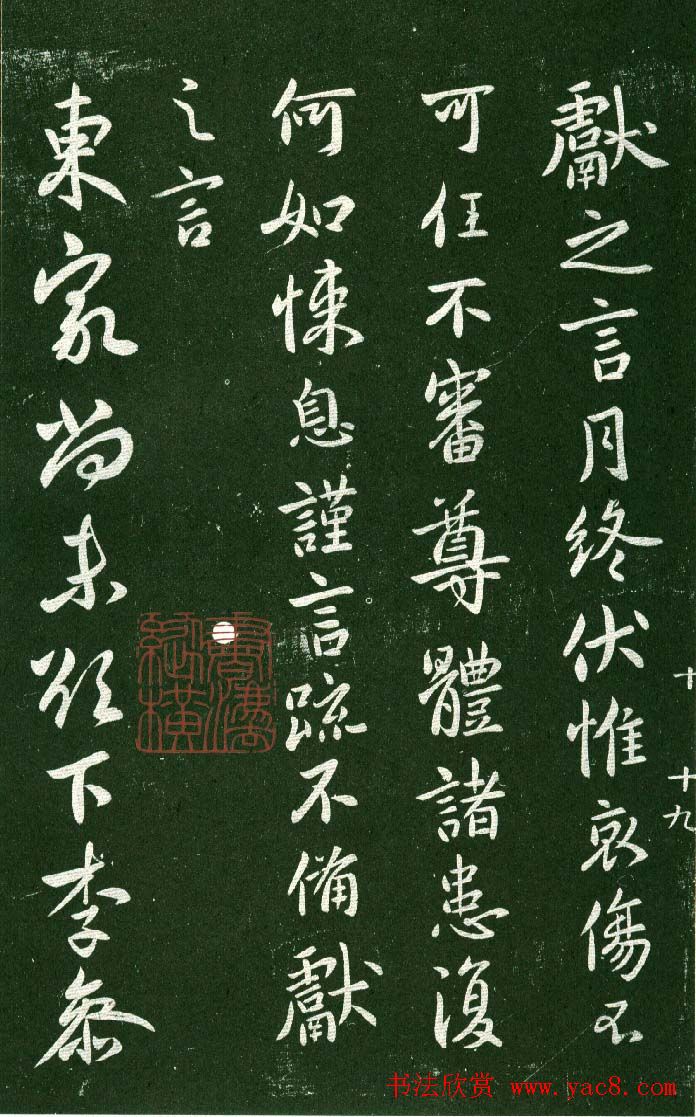 獻之言月終伏惟哀傷不
可任不審尊體諸患復
何如悚息謹言疏不備獻
之言
東家尚未欲下李參
十
十九
書法縱橫
书法欣赏 www.yac8.com